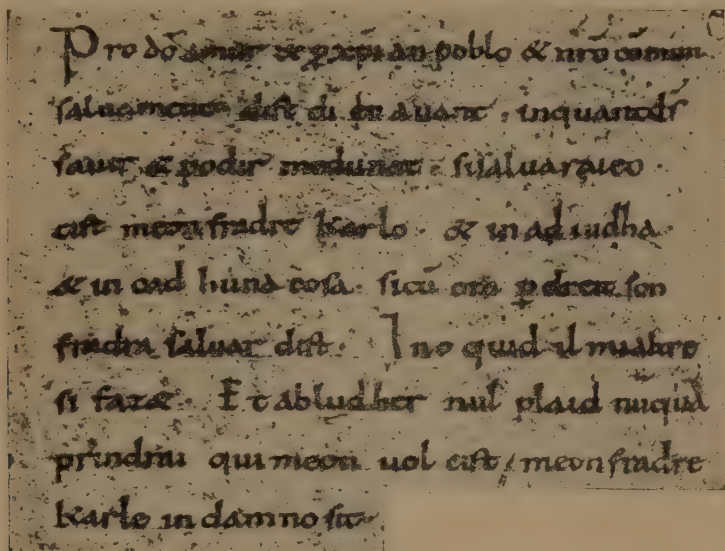 Pro dō amur & ꝑ xp̄ian poblo & nr̄o cōmun
saluament. dist di en auant. inquantdS
sauir & podir medunat. sisaluaraieo.
cist meon fradre Karlo. & in ad iudha
& in cad huna cosa. sicū om ꝑ dreit son
fradra saluar dist. Ino quid il mialtre
si fazæ. Et abludher nul plaid nūquā
prindrai qui meon uol cist, meonfradre
Karle in damno sit.